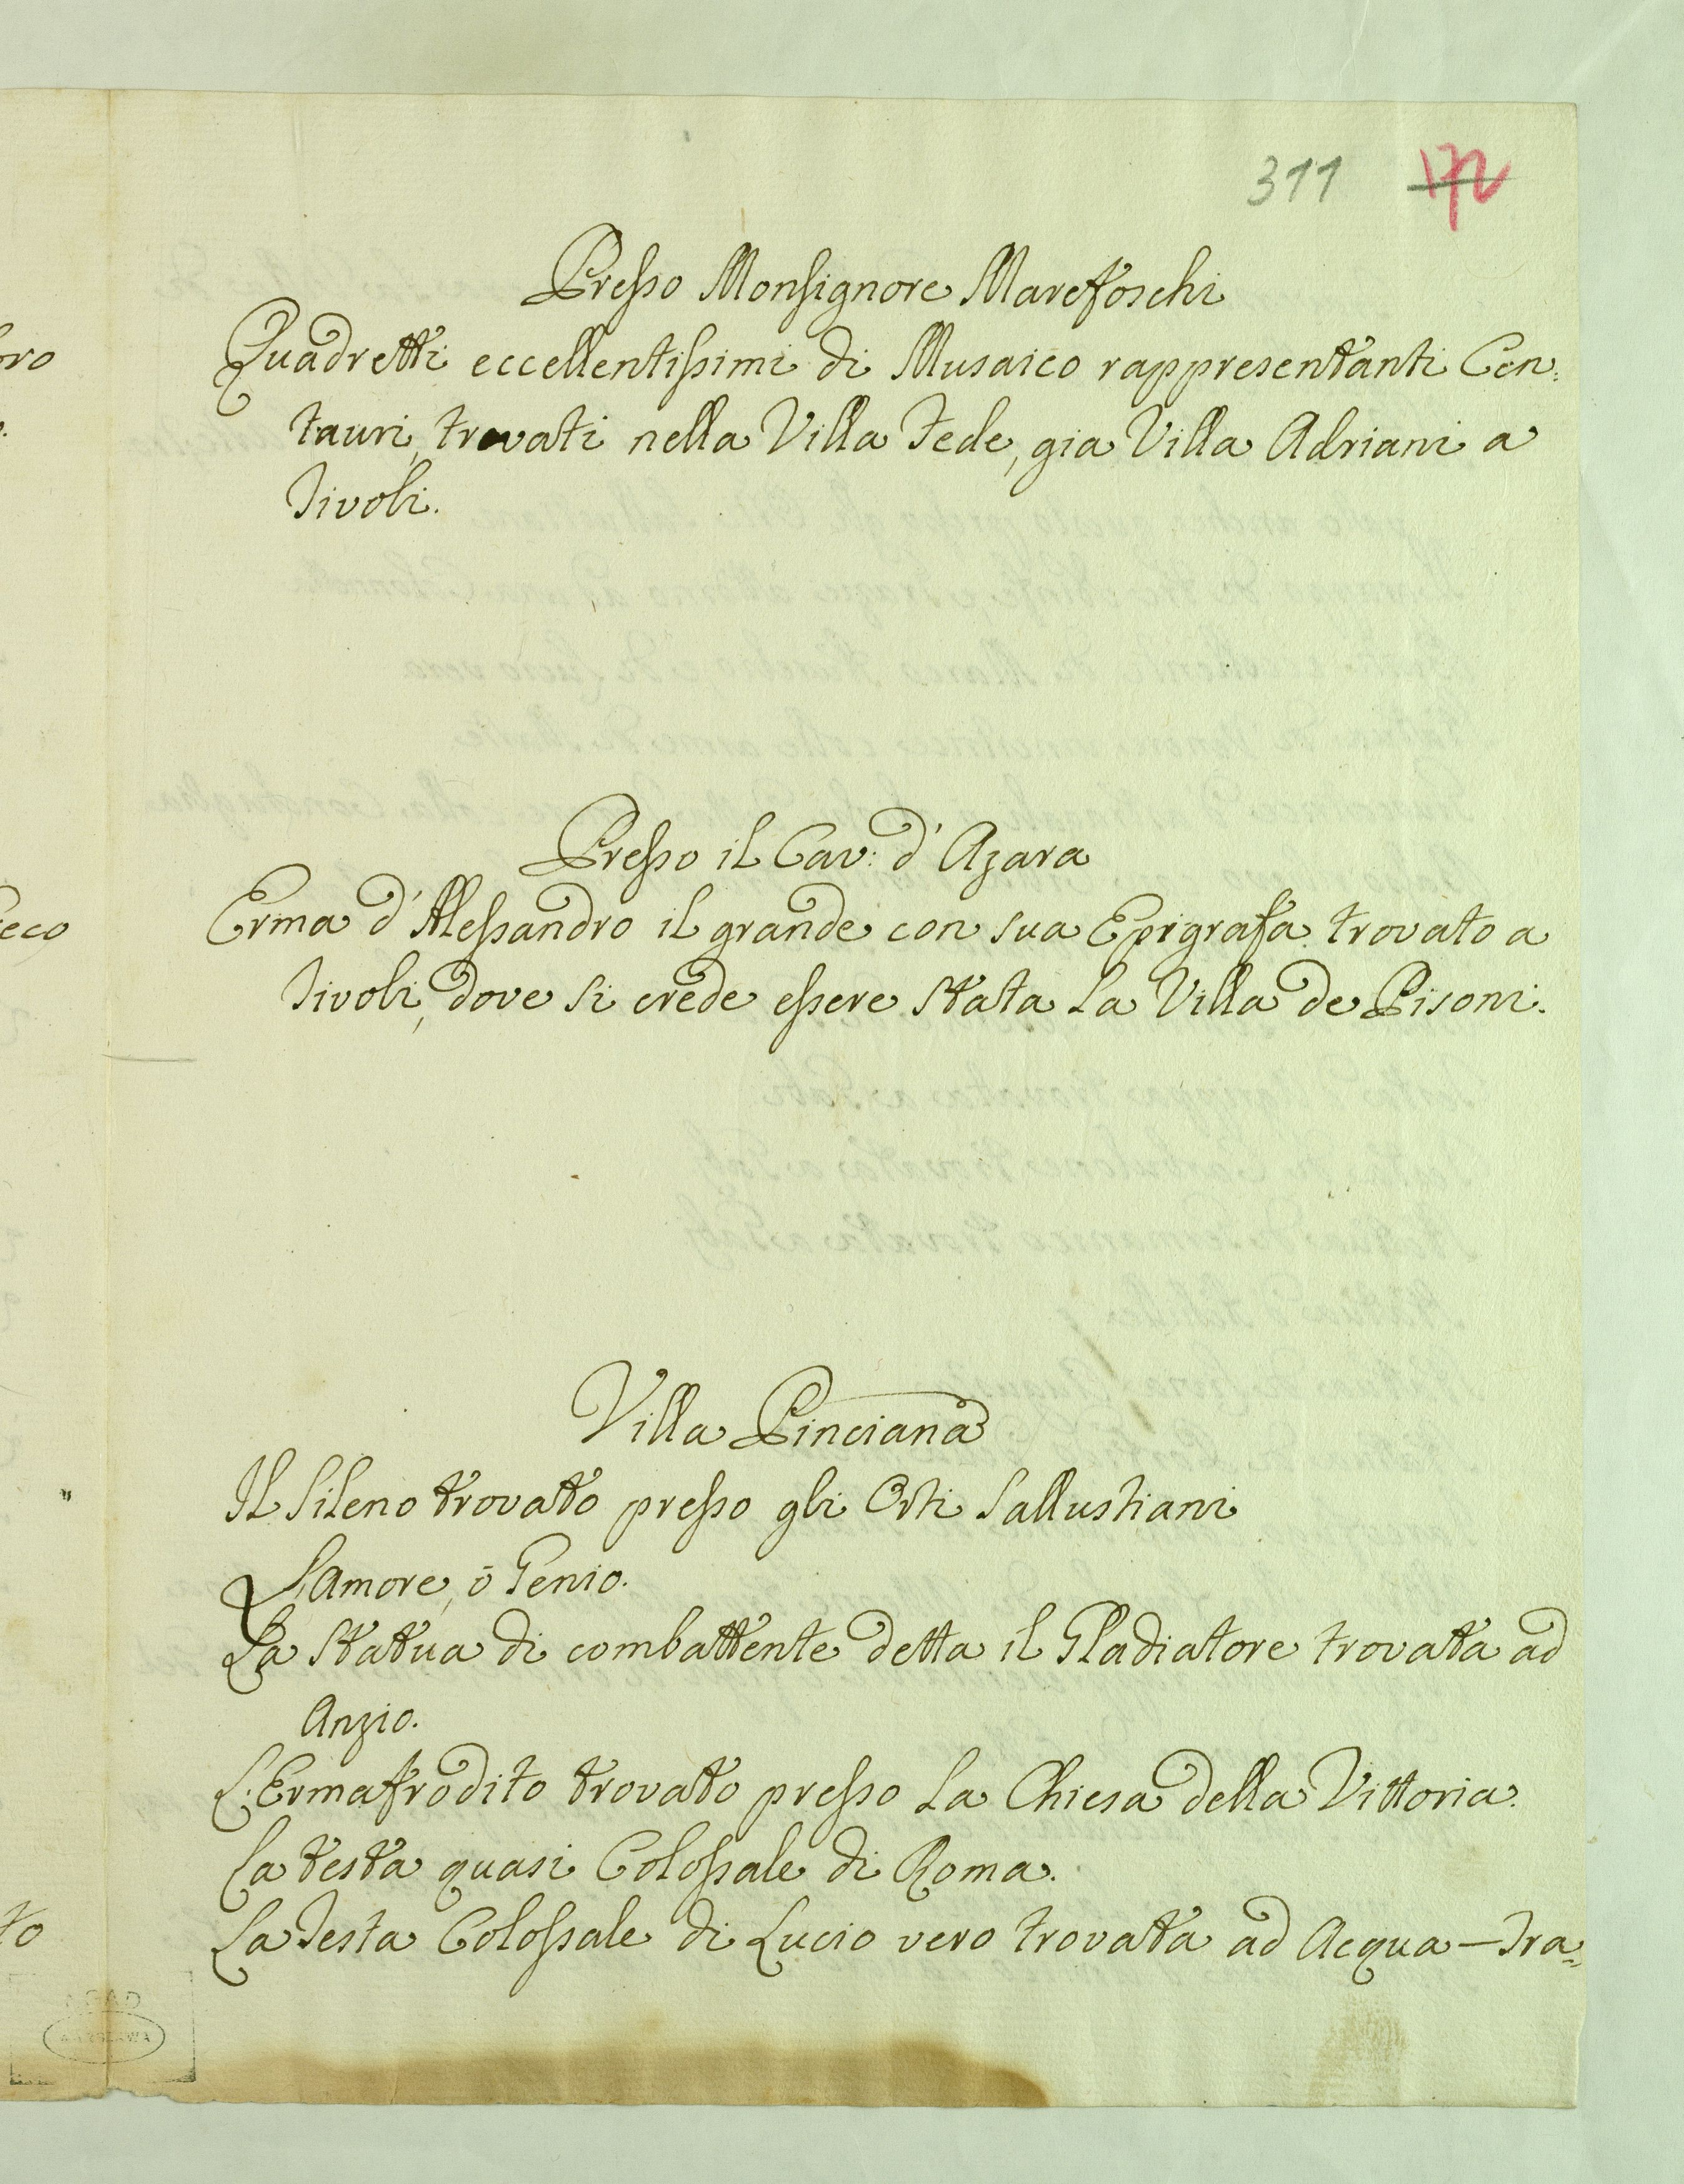 311 172
Presso Monsignore Marefoschi
Quadretti eccellentissimi di Musaico rappresentanti Cen:
tauri, trovati nella Villa Fede, gia Villa Adriani a
Tivoli.
Presso il Cav: d' Azara
Erma d'Alessandro il grande con sua Epigrafa trovato a
Tivoli, dove si crede essere stata la Villa de Pisoni.
Villa Pinciana
Il Sileno trovato presso gli Orti Sallustiani
L'Amore, ò Genio.
La Statua di combattente detta il Gladiatore trovata ad
Anzio.
L'Ermafrodito trovato presso la Chiesa della Vittoria.
La testa quasi Colossale di Roma.
La Testa Colossale di Lucio vero trovata ad Acqua-Tra=
oro
eco
to
AGAD
WARSZAWA